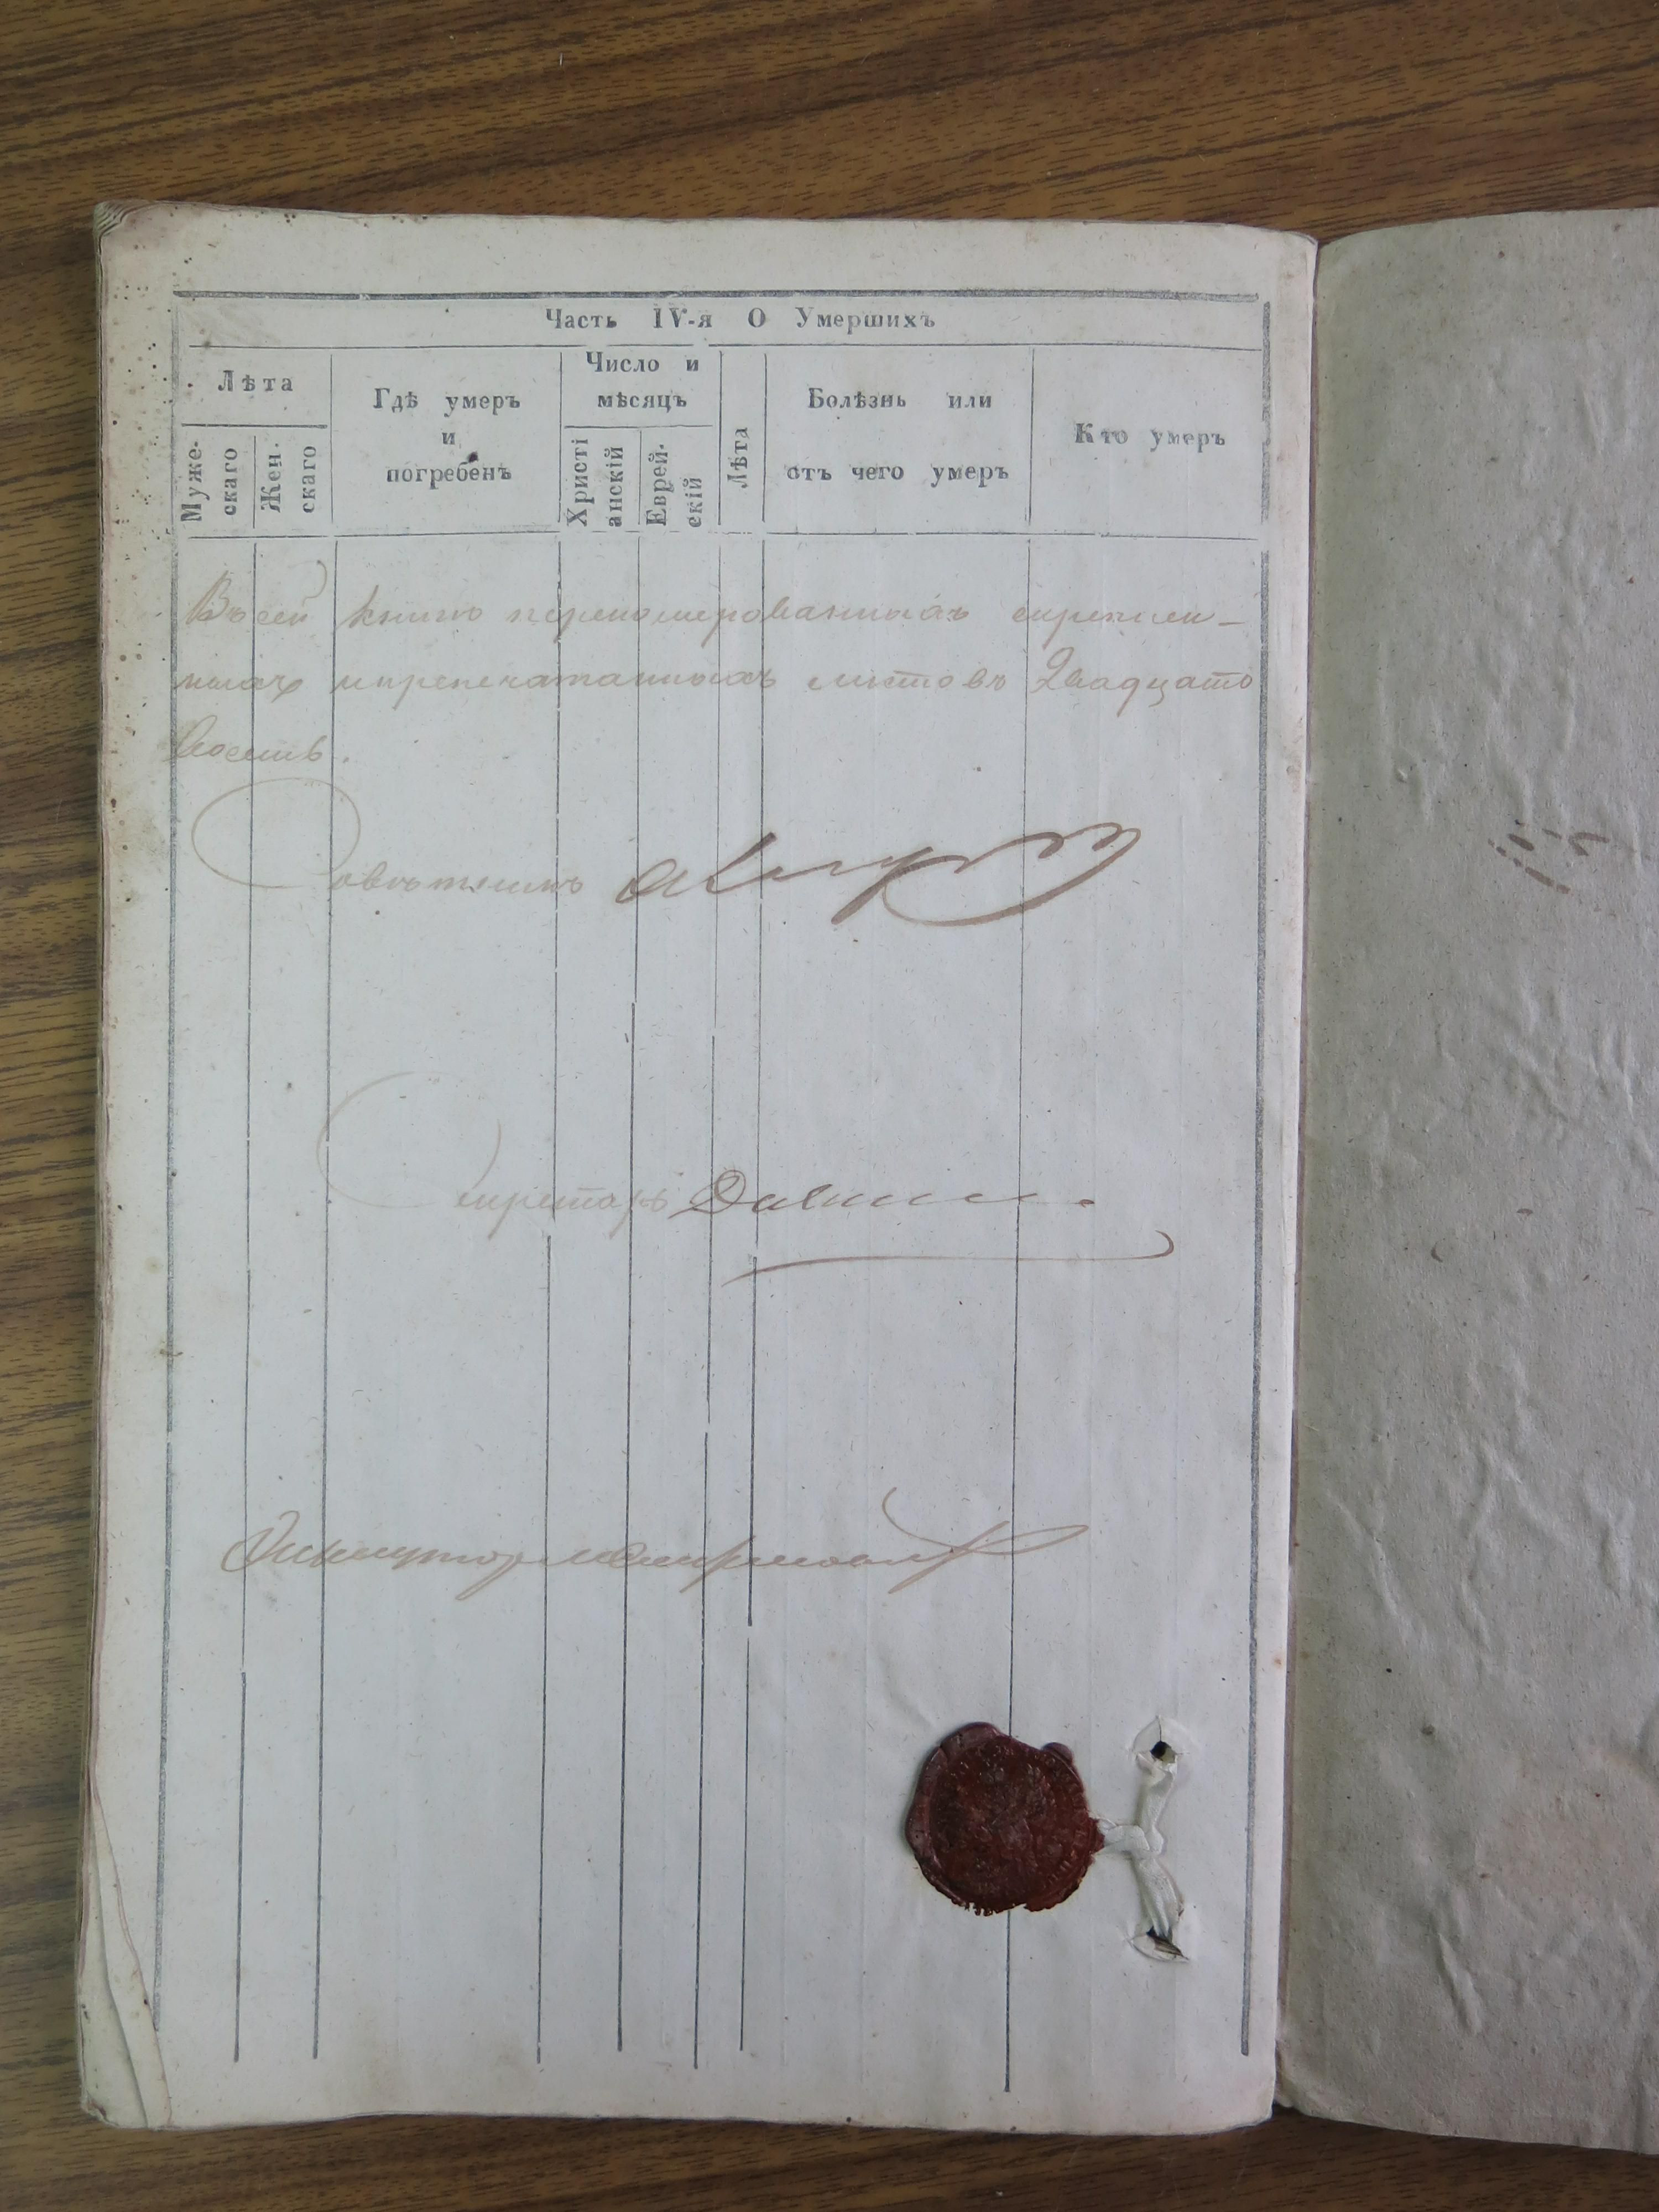 Часть IV-я О Умершихъ
Лѣта
Муже-
скаго
Жен.
скаго
Гдѣ умеръ
и
погребенъ
Число и
мѣсяцъ
Христі
анскій
Еврей-
скій
Лѣта
Болѣзнь или
отъ чего умеръ
Кто умеръ
Въ сей книгѣ перепомерованныхъ скреплен-
ныхъ ипрепечатанныхъ листовъ Двадцать
Восемь.
Совѣтникъ
Секретарь